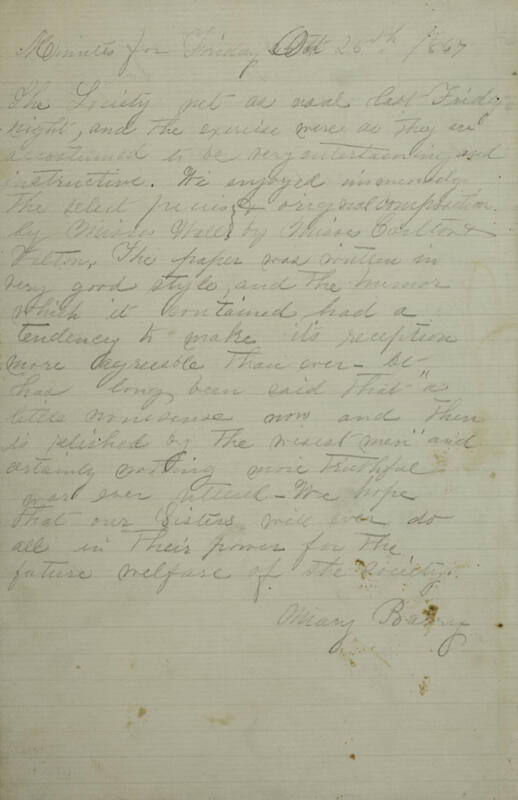 Minutes for Friday Oct 25th. 1867
The Society met as usual last Friday
night, and the exercise were as they are
accustomed to be very entertaining and
instructive. We enjoyed immensely
the select pieces & original composition
by Misses Wall & by Misses Carlton &
Welton. The paper was written in
very good style, and the humor
which it contained had a
tendency to make its reception
more agreeable than ever – It
has long been said that "a
little nonsense now and then
is relished by the wisest men" and
certainly nothing more truthful
was ever uttered – We hope
that our Sisters will ever do
all in their power for the
future welfare of the Society.
Mary Barry